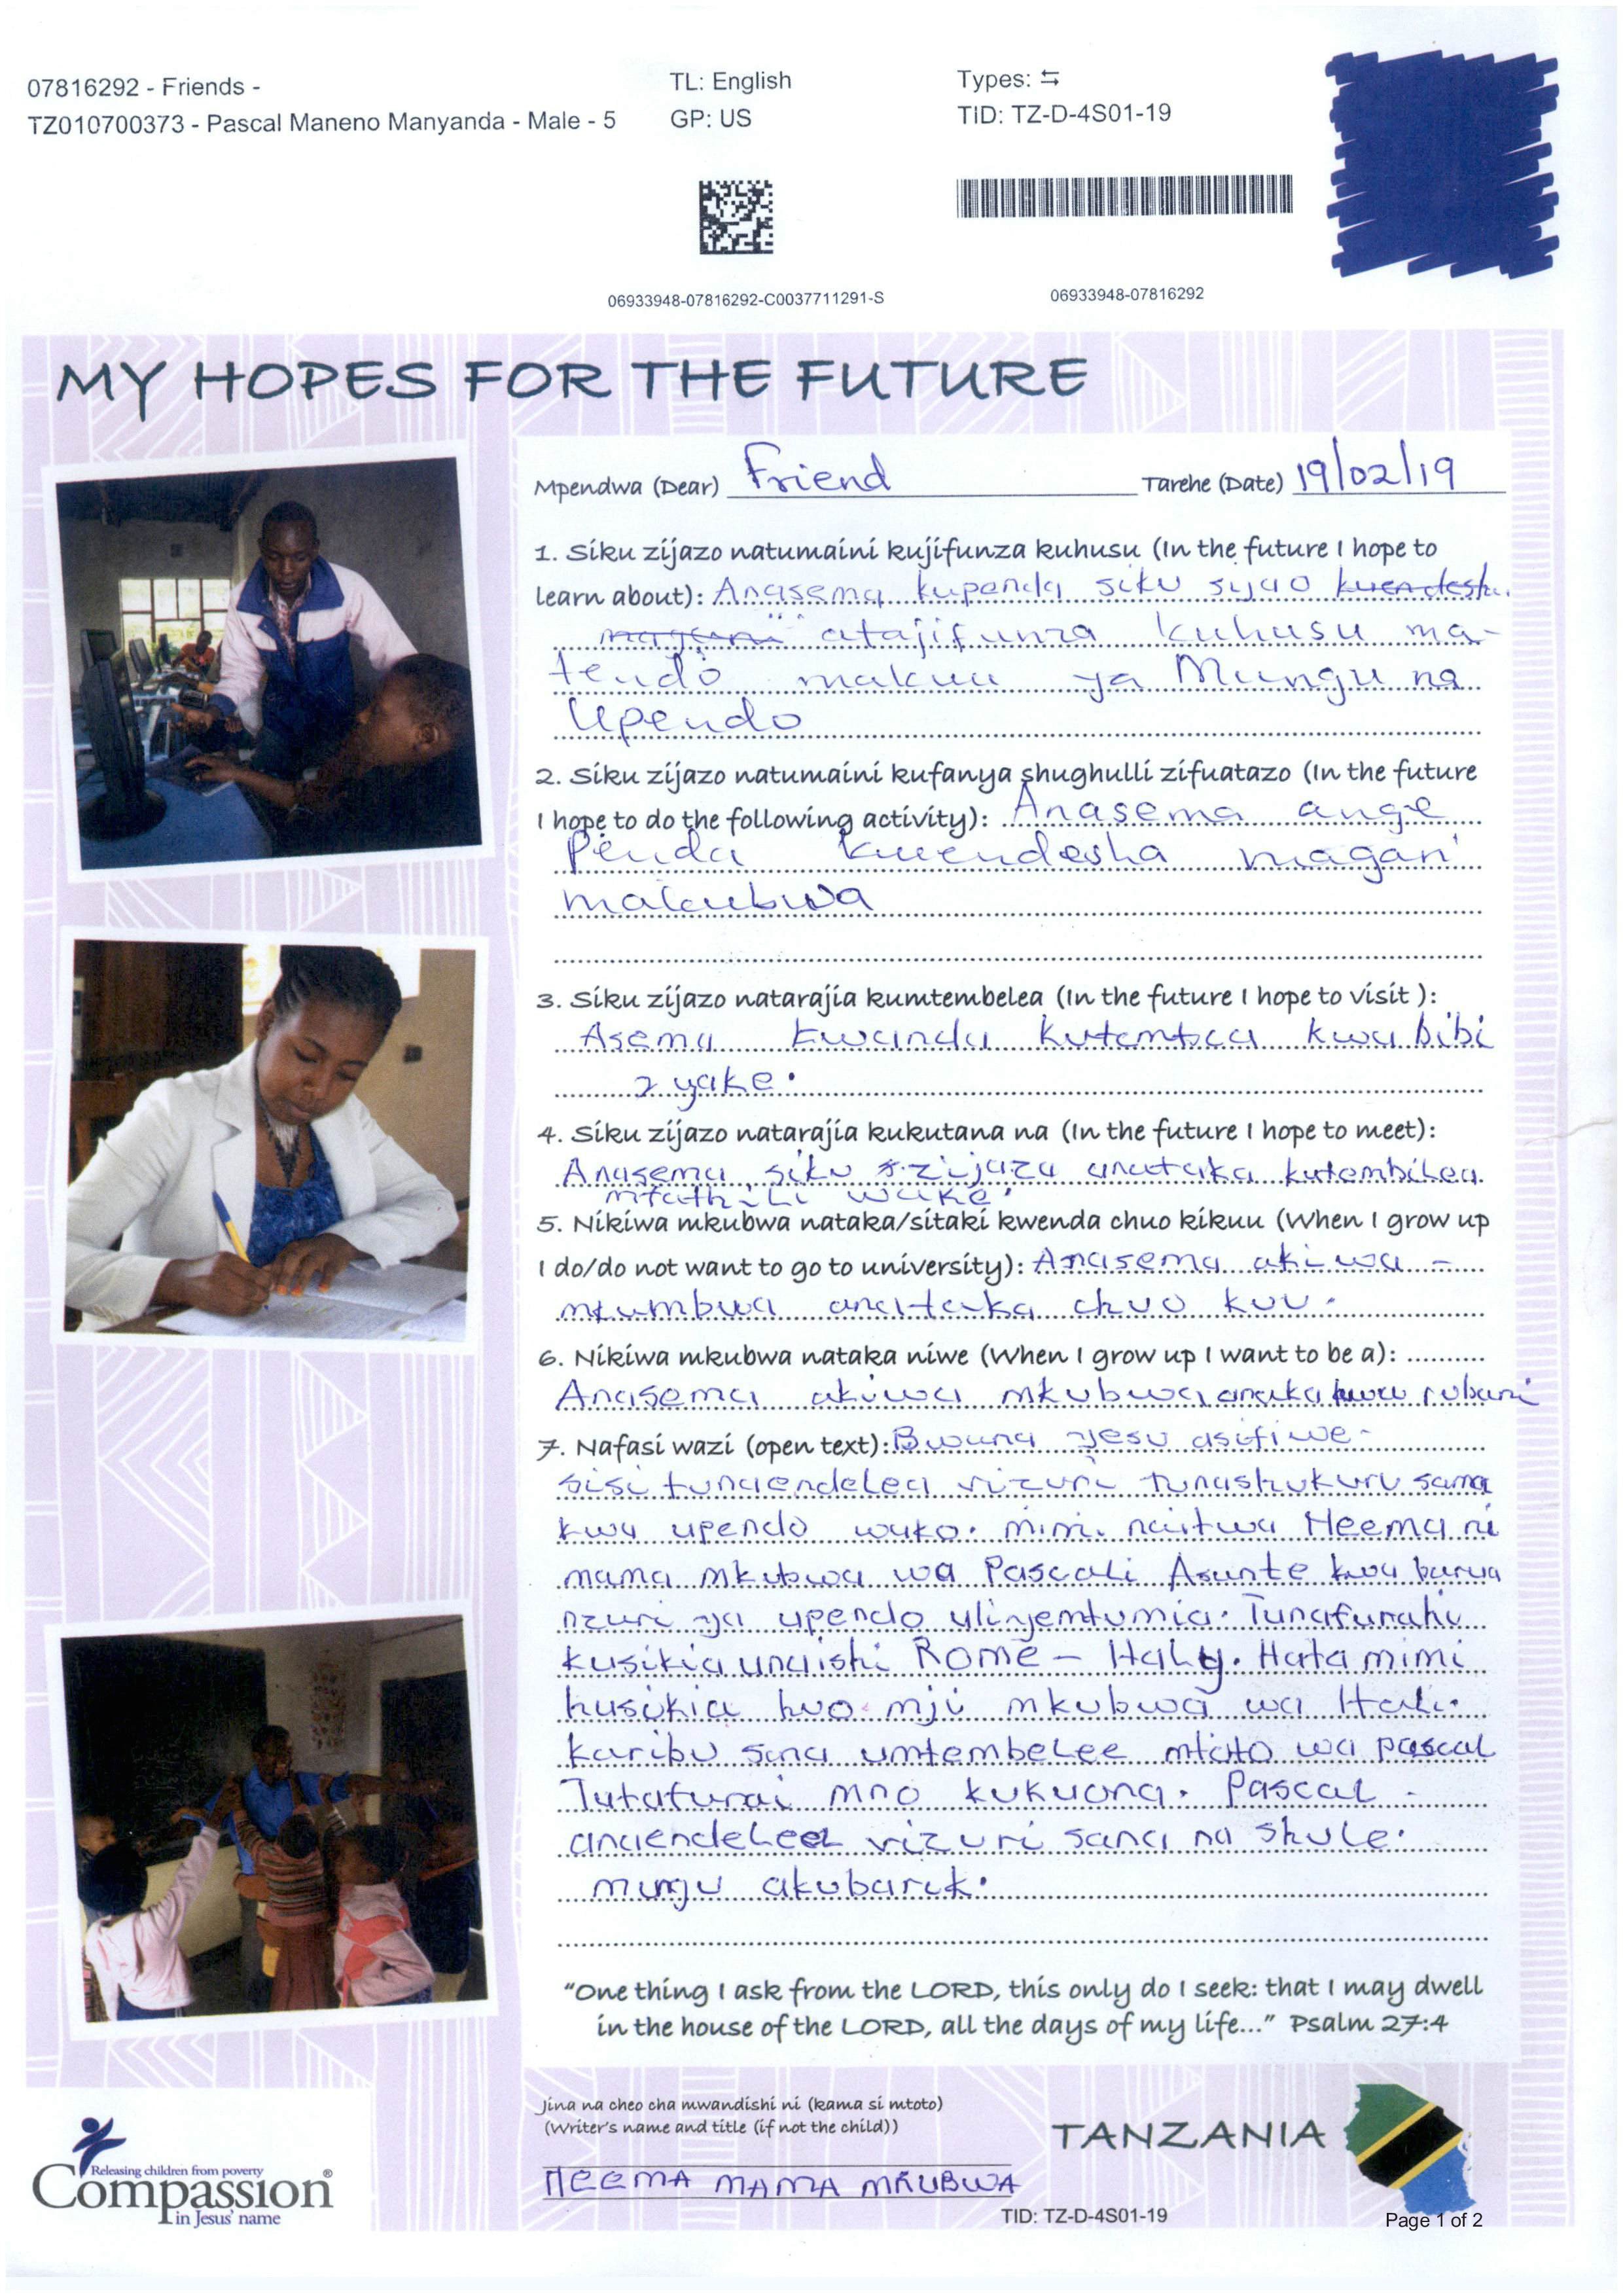 07816292 - Friends -
TZ010700373 - Pascal Maneno Manyanda - Male - 5
TL: English
GP: US
Types: ⇆
TID: TZ-D-4S01-19
06933948-07816292-C0037711291-S
06933948-07816292
MY HOPES FOR THE FUTURE
Mpendwa (Dear) Friend Tarehe (Date) 19/02/19
1. Siku zijazo natumaini kujifunza kuhusu (In the future I hope to
learn about): Anasema kupenda siku sijao
atajifunza kuhusu ma-
tendo makuu ya Mungu na
Upendo
2. Siku zijazo natumaini kufanya shughulli zifuatazo (In the future
I hope to do the following activity): Anasema ange
penda kuendesha magari
makubwa
3. Siku zijazo natarajia kumtembelea (In the future I hope to visit ):
Asema kwanda kutembea kwa bibi
yake.
4. Siku zijazo natarajia kukutana na (In the future I hope to meet):
Anasema siku zijaza anataka kutembilea
mfathili wake.
5. Nikiwa mkubwa nataka/sitaki kwenda chuo kikuu (When I grow up
I do/do not want to go to university): Anasema akiwa -
mkumbwa anataka chuo kuu.
6. Nikiwa mkubwa nataka niwe (When I grow up I want to be a): ..........
Anasema akiwa mkubwa anaka kuwa rubani
7. Nafasi wazi (open text): Bwana yesu asifiwe-
sisi tunaendelea vizuri tunashukuru sana
kwa upendo wako. mimi naitwa Neema ni
mama mkubwa wa Pascali Asante kwa barua
nzuri ya upendo uliyemtumia. Tunafurahi
kusikia unaishi Rome - Italy. Hata mimi
husikia huo mji mkubwa wa Itali.
karibu sana umtembelee mtoto wa pascal
Tutafurai mno kukuona. Pascal -
anaendelea vizuri sana na shule.
mungu akubarik.
"One thing I ask from the LORD, this only do I seek: that I may dwell
in the house of the LORD, all the days of my life..." Psalm 27:4
Jina na cheo cha mwandishi ni (kama si mtoto)
(Writer's name and title (if not the child))
NEEMA MAMA MKUBWA
TANZANIA
Releasing children from poverty
Compassion®
in Jesus' name
TID: TZ-D-4S01-19
Page 1 of 2